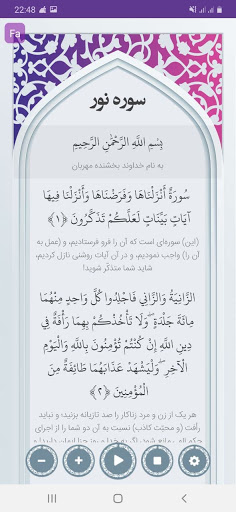 22:48
84%
Fa
سوره نور
بِسْمِ اللَّهِ الرَّحْمَٰنِ الرَّحِيمِ
به نام خداوند بخشنده مهربان
سُورَةٌ أَنْزَلْنَاهَا وَفَرَضْنَاهَا وَأَنْزَلْنَا فِيهَا
آيَاتٍ بَيِّنَاتٍ لَعَلَّكُمْ تَذَكَّرُونَ ﴿١﴾
(این) سوره‌ای است که آن را فرو فرستادیم، و (عمل به
آن را) واجب نمودیم، و در آن آیات روشنی نازل کردیم،
شاید شما متذکّر شوید!
الزَّانِيَةُ وَالزَّانِي فَاجْلِدُوا كُلَّ وَاحِدٍ مِنْهُمَا
مِائَةَ جَلْدَةٍ ۖ وَلَا تَأْخُذْكُمْ بِهِمَا رَأْفَةٌ فِي
دِينِ اللَّهِ إِنْ كُنْتُمْ تُؤْمِنُونَ بِاللَّهِ وَالْيَوْمِ
الْآخِرِ ۖ وَلْيَشْهَدْ عَذَابَهُمَا طَائِفَةٌ مِنَ
الْمُؤْمِنِينَ ﴿٢﴾
هر یک از زن و مرد زناکار را صد تازیانه بزنید؛ و نباید
رأفت (و محبّت کاذب) نسبت به آن دو شما را از اجرای